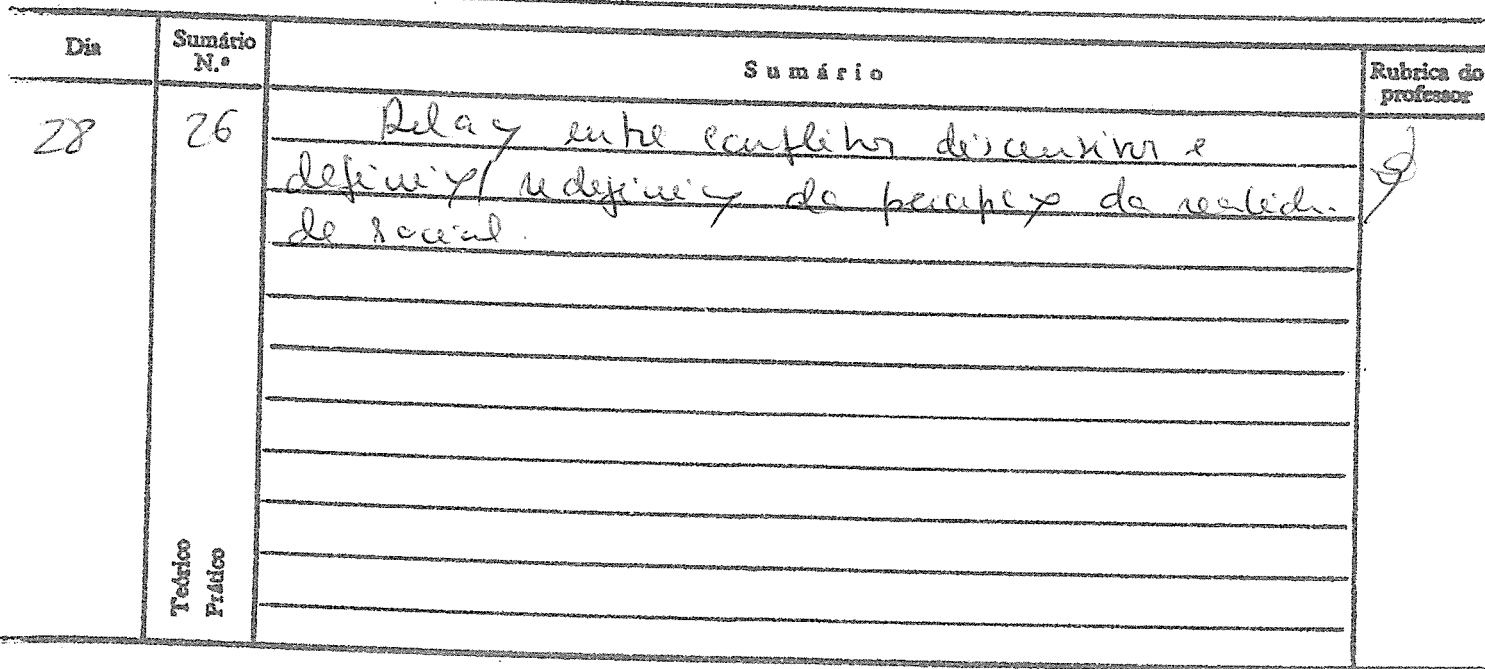 Dia
Sumário N.º
Sumário
Rubrica do professor
28
26
Relaç entre conflitos discursivos e
definiç/ redefiniç da percepç da realida-
de social.
Teórico
Prático